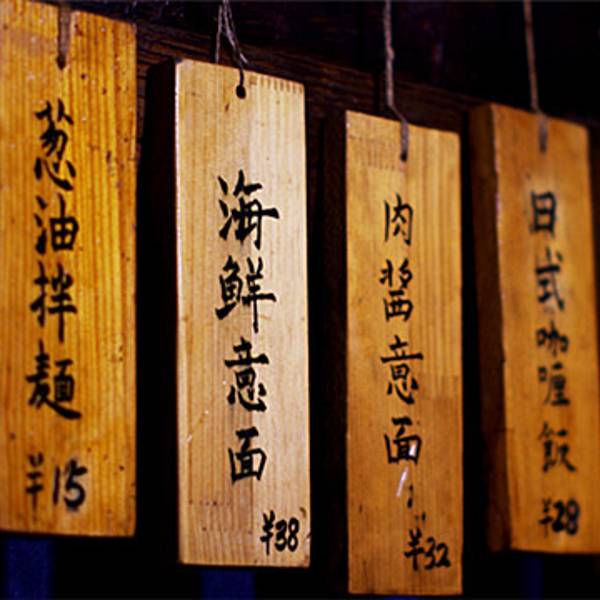 葱油拌麵
¥15
海鮮意面
¥38
肉醬意面
¥32
日式咖喱飯
¥28